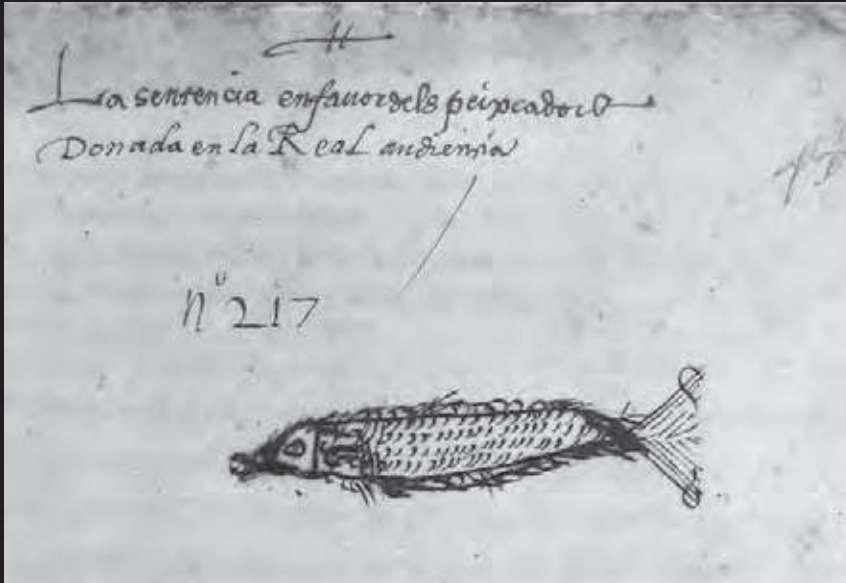 La sentencia enfauor dels peixcadors
Donada en la Real audiencia
nº 217